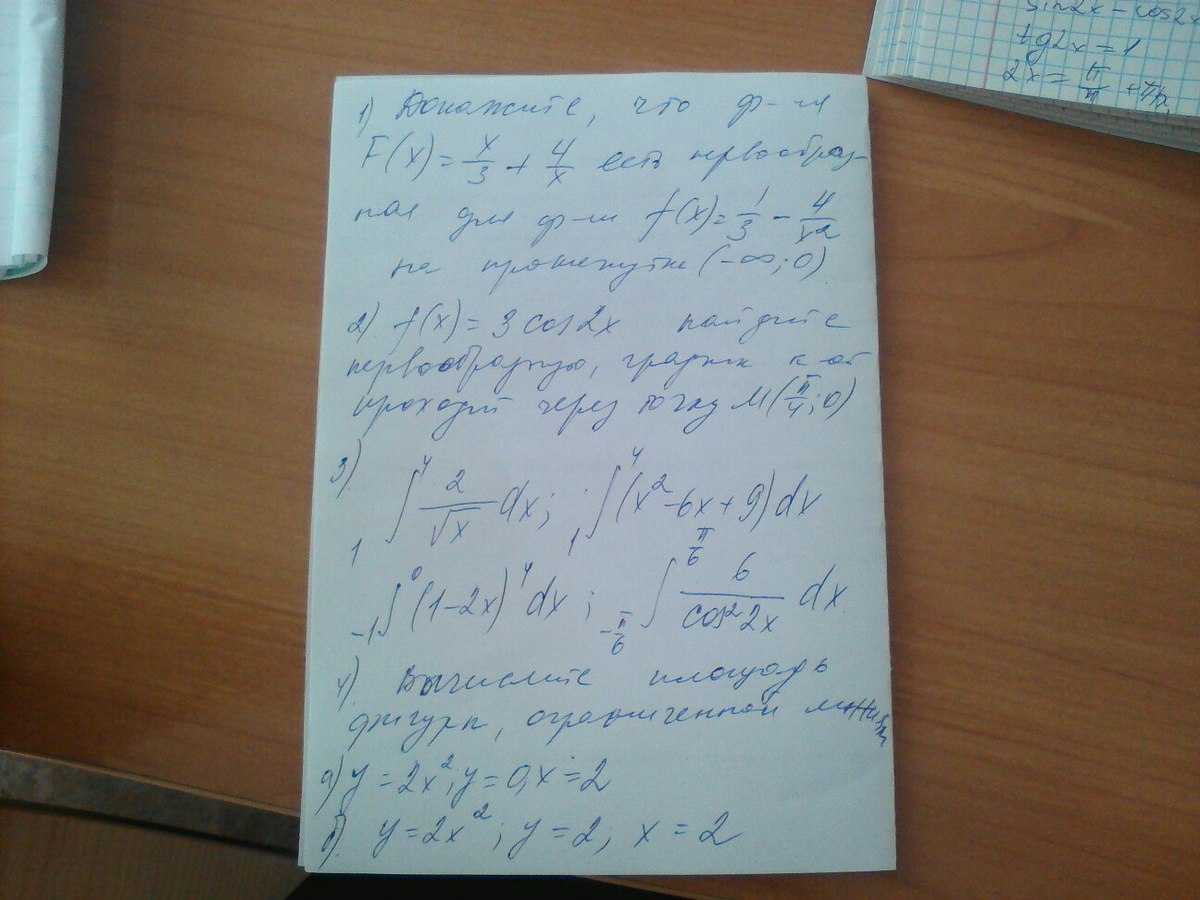 sin2x - cos2x
tg2x = 1
2x = π/п + πn,
1) Докажите, что ф-ия
F(x) = x/3 + 4/x есть первообраз-
ная для ф-ии f(x) = 1/3 - 4/x²
на промежутке (-∞; 0)
2) f(x) = 3 cos 2x найдите
первообразную, график к-ой
проходит через точку M(π/4; 0)
3) ₁∫⁴ 2/√x dx; ₁∫⁴ (x² - 6x + 9) dx
₋₁∫⁰ (1-2x)⁴ dx; ∫ from -π/6 to π/6 6/cos² 2x dx
4) Вычислите площадь
фигуры, ограниченной линиями
а) y = 2x²; y = 0, x = 2
б) y = 2x²; y = 2, x = 2